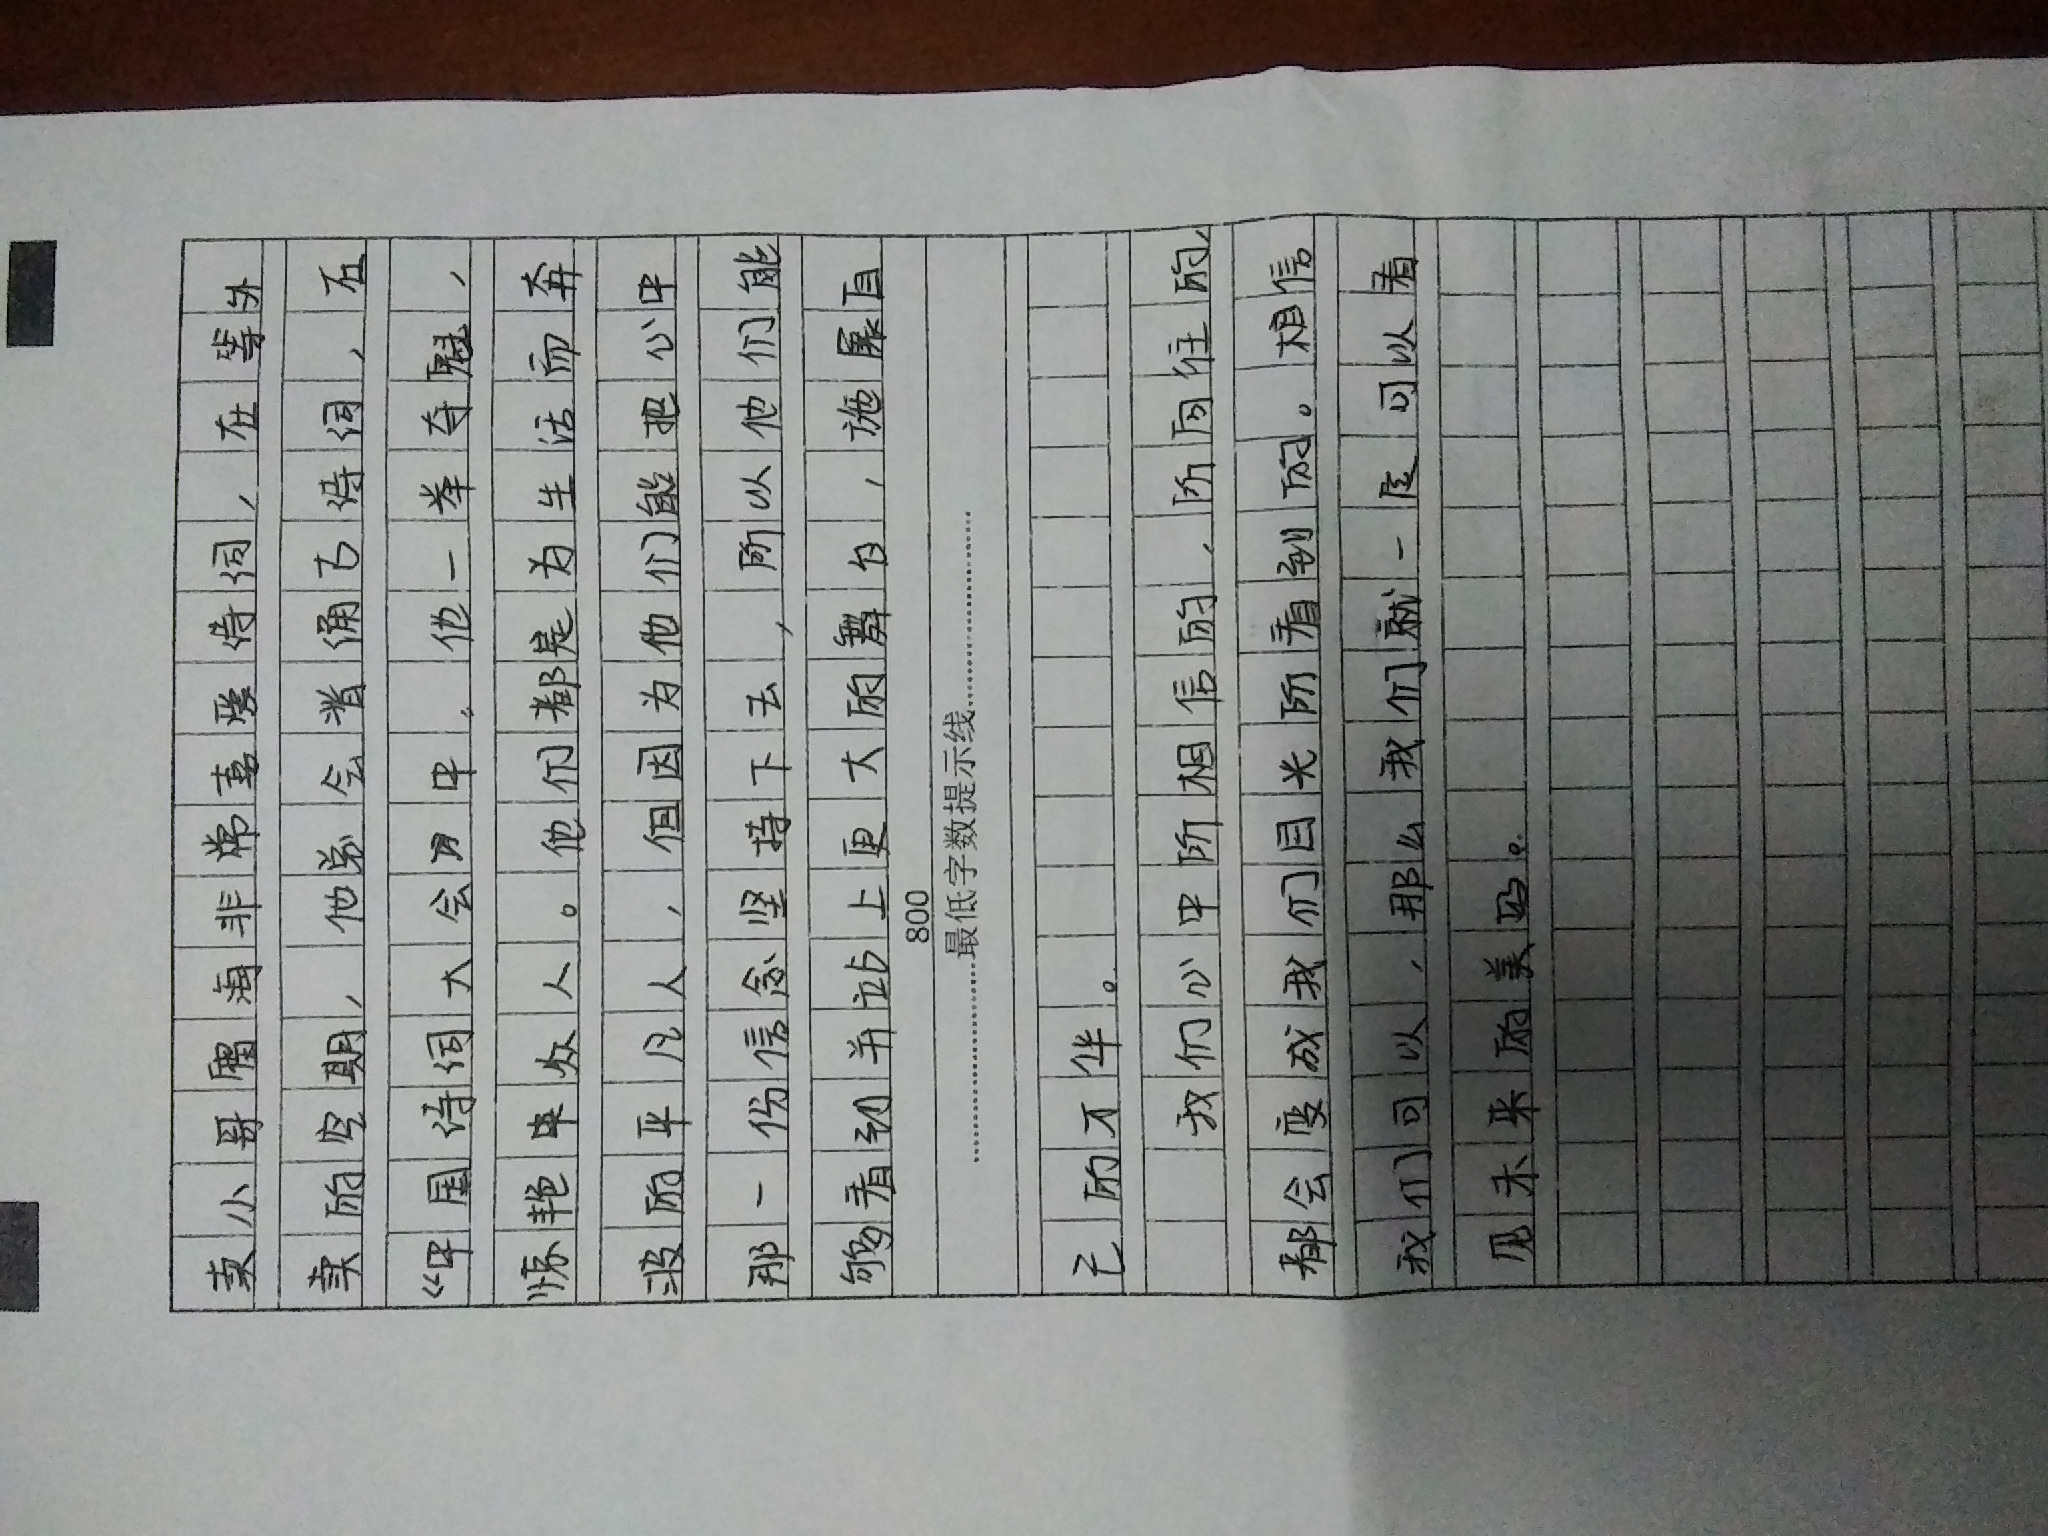 卖小哥雷海非常喜爱诗词，在等外
卖的空期，他总会背诵古诗词，在
“中国诗词大会”中。他一举夺魁，
惊艳中众人。他们都是为生活而奔
波的平凡人，但因为他们能把心中
那一份信念坚持下去，所以他们能
够看到并站上更大的舞台，施展自
800
最低字数提示线
己的才华。
我们心中所相信的，所向往的
都会变成我们目光所看到的。相信
我们可以，那么我们就一定可以看
见未来的美好。